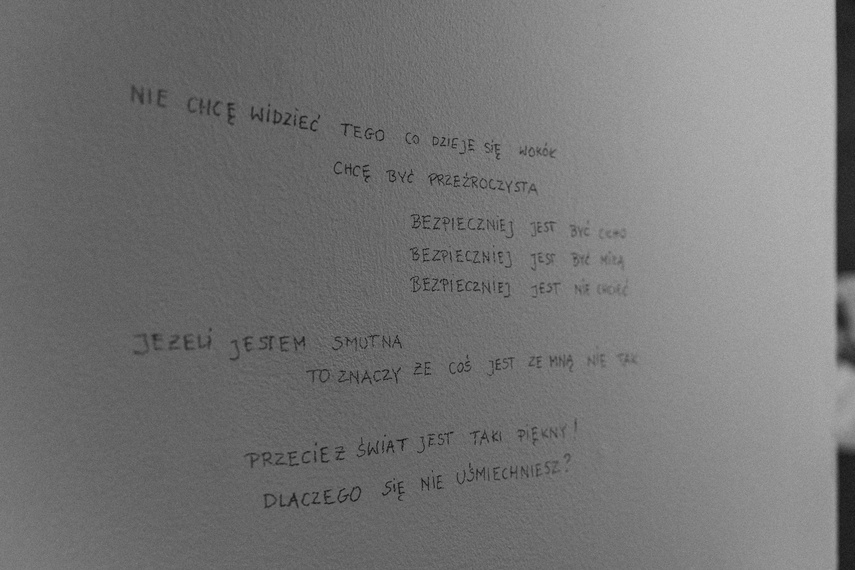 NIE CHCĘ WIDZIEĆ TEGO CO DZIEJE SIĘ WOKÓŁ
CHCĘ BYĆ PRZEŹROCZYSTA
BEZPIECZNIEJ JEST BYĆ CICHO
BEZPIECZNIEJ JEST BYĆ MIŁĄ
BEZPIECZNIEJ JEST NIE CHCIEĆ
JEŻELI JESTEM SMUTNA
TO ZNACZY ŻE COŚ JEST ZE MNĄ NIE TAK
PRZECIEŻ ŚWIAT JEST TAKI PIĘKNY!
DLACZEGO SIĘ NIE UŚMIECHNIESZ?